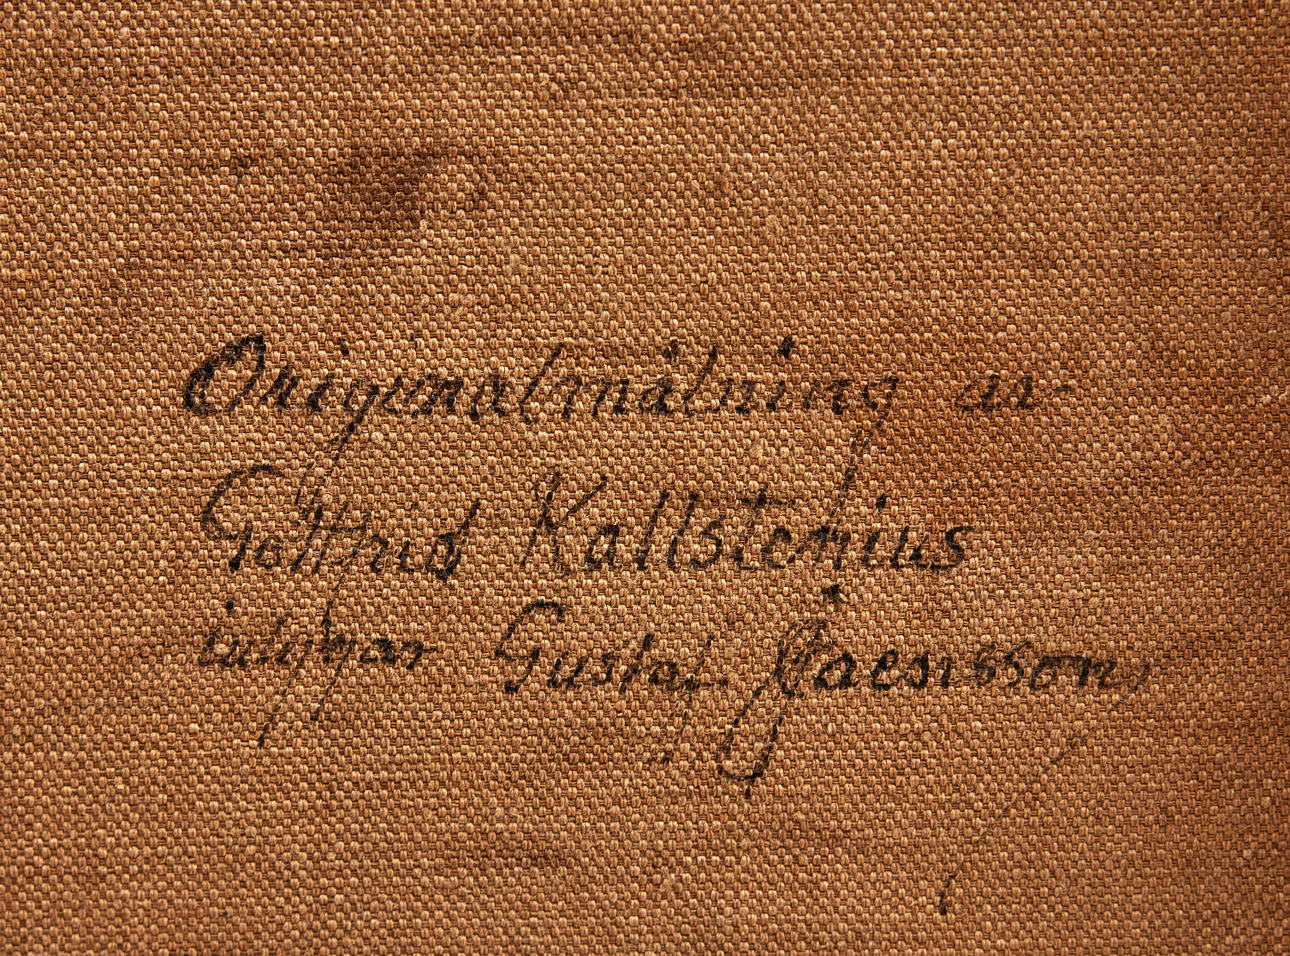 Originalmålning av
Gottfrid Kallstenius
intygar Gustaf